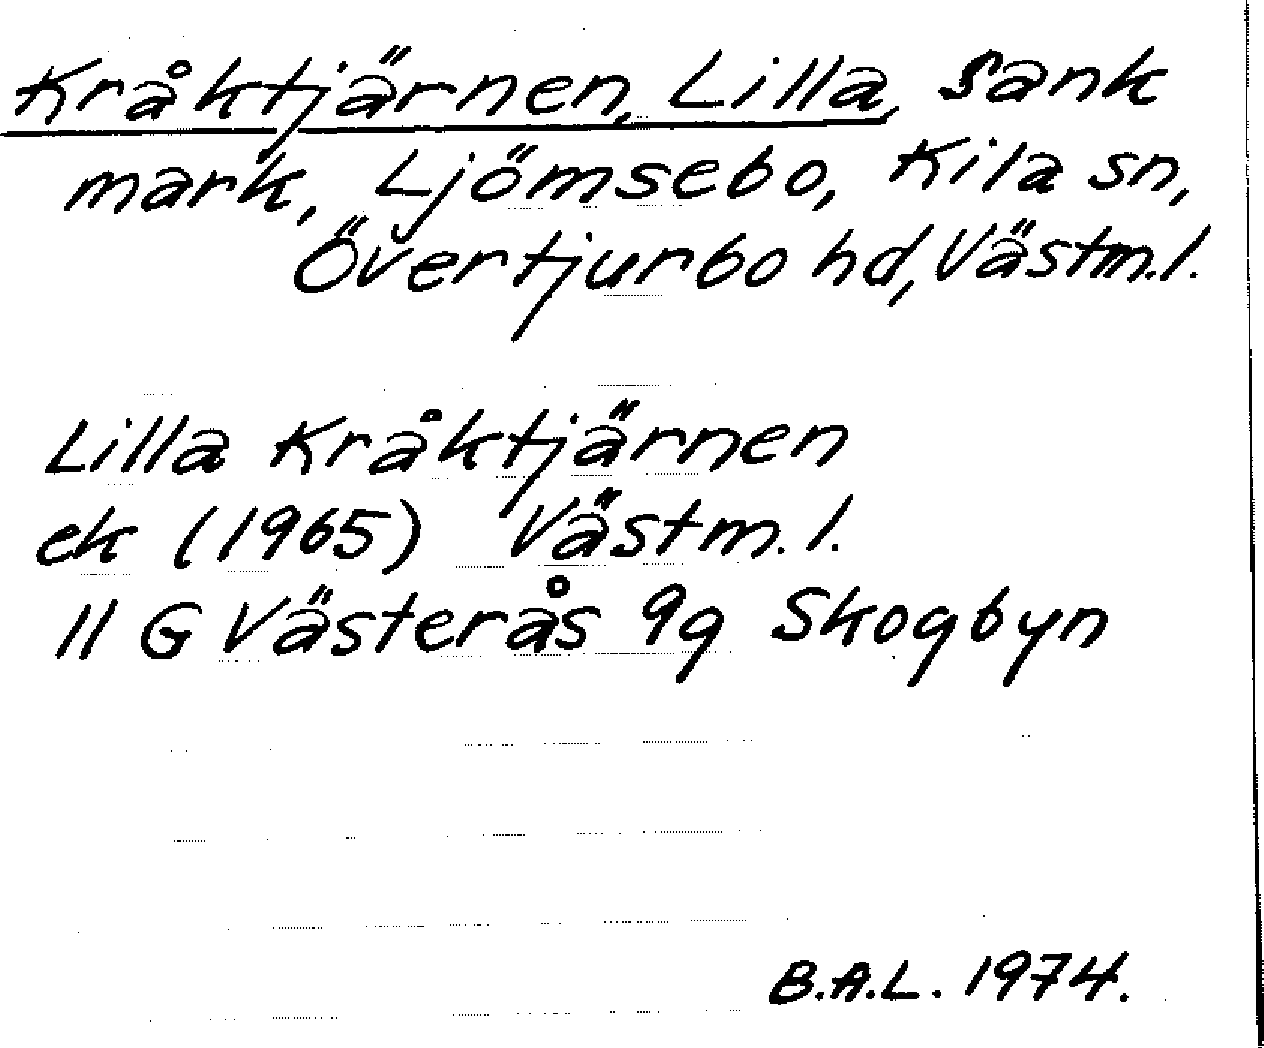 Kråktjärnen, Lilla, Sank
mark, Ljömsebo, Kila sn,
Övertjurbo hd, Västm.l.
Lilla Kråktjärnen
ek (1965) Västm.l.
11 G Västerås 9g Skogbyn
B.A.L. 1974.